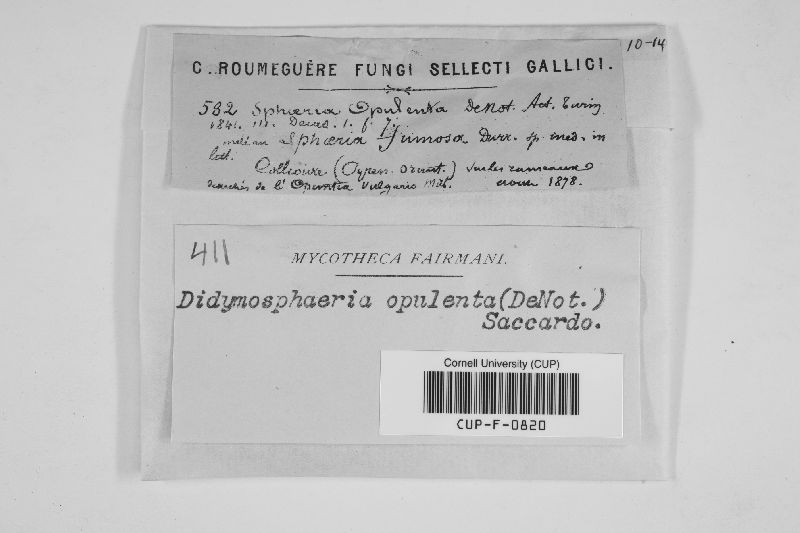 10-14
C. ROUMEGUÈRE FUNGI SELLECTI GALLICI.
532 Sphæria Opulenta DeNot. Act. Turin
1841. III. Decad. 1. f.
Sphæria Durr. sp. ined. in
Collioure (Pyren. Orient.) sur les rameaux
de l'Opuntia Vulgaris Mill. 1878.
411
MYCOTHECA FAIRMANI.
Didymosphaeria opulenta(DeNot.)
Saccardo.
Cornell University (CUP)
CUP-F-0820